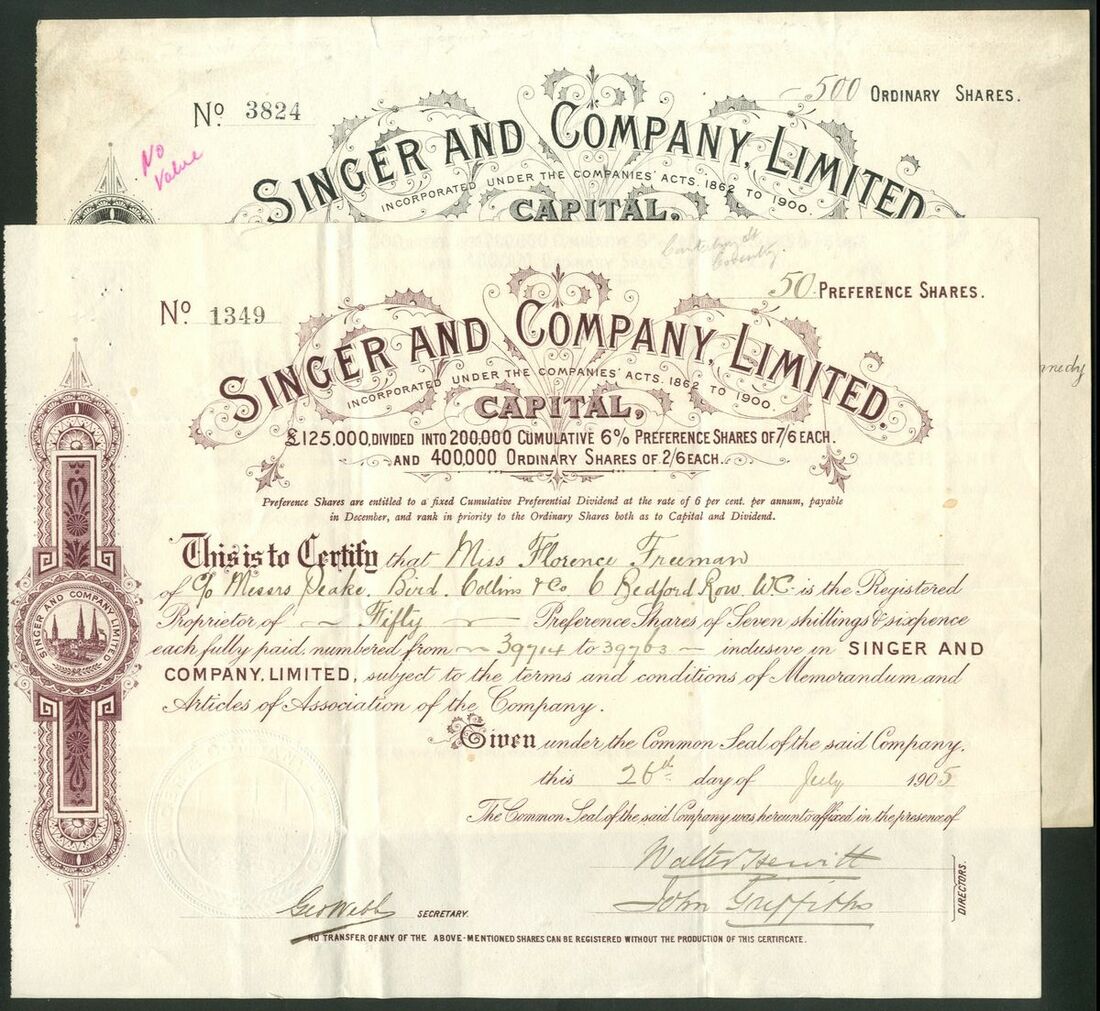 500 ORDINARY SHARES.
No 3824
No
Value
SINGER AND COMPANY, LIMITED
INCORPORATED UNDER THE COMPANIES' ACTS. 1862 TO 1900.
CAPITAL,
Coventry.
50 PREFERENCE SHARES.
No 1349
SINGER AND COMPANY, LIMITED.
INCORPORATED UNDER THE COMPANIES' ACTS. 1862 TO 1900.
CAPITAL,
£125,000, DIVIDED INTO 200,000 CUMULATIVE 6% PREFERENCE SHARES OF 7/6 EACH.
AND 400,000 ORDINARY SHARES OF 2/6 EACH.
Preference Shares are entitled to a fixed Cumulative Preferential Dividend at the rate of 6 per cent. per annum, payable
in December, and rank in priority to the Ordinary Shares both as to Capital and Dividend.
This is to Certify that Miss Florence Freeman
of c/o Messrs Peake, Bird, Collins & Co. 6 Bedford Row W.C. is the Registered
Proprietor of Fifty Preference Shares of Seven shillings & sixpence
each fully paid, numbered from 39714 to 39763 inclusive in SINGER AND
COMPANY, LIMITED, subject to the terms and conditions of Memorandum and
Articles of Association of the Company.
Given under the Common Seal of the said Company.
this 26th day of July 1905
The Common Seal of the said Company was hereunto affixed in the presence of
Walter Hewitt
John Griffiths
DIRECTORS.
Geo Webb SECRETARY.
NO TRANSFER OF ANY OF THE ABOVE-MENTIONED SHARES CAN BE REGISTERED WITHOUT THE PRODUCTION OF THIS CERTIFICATE.
SINGER AND COMPANY LIMITED
nnedy